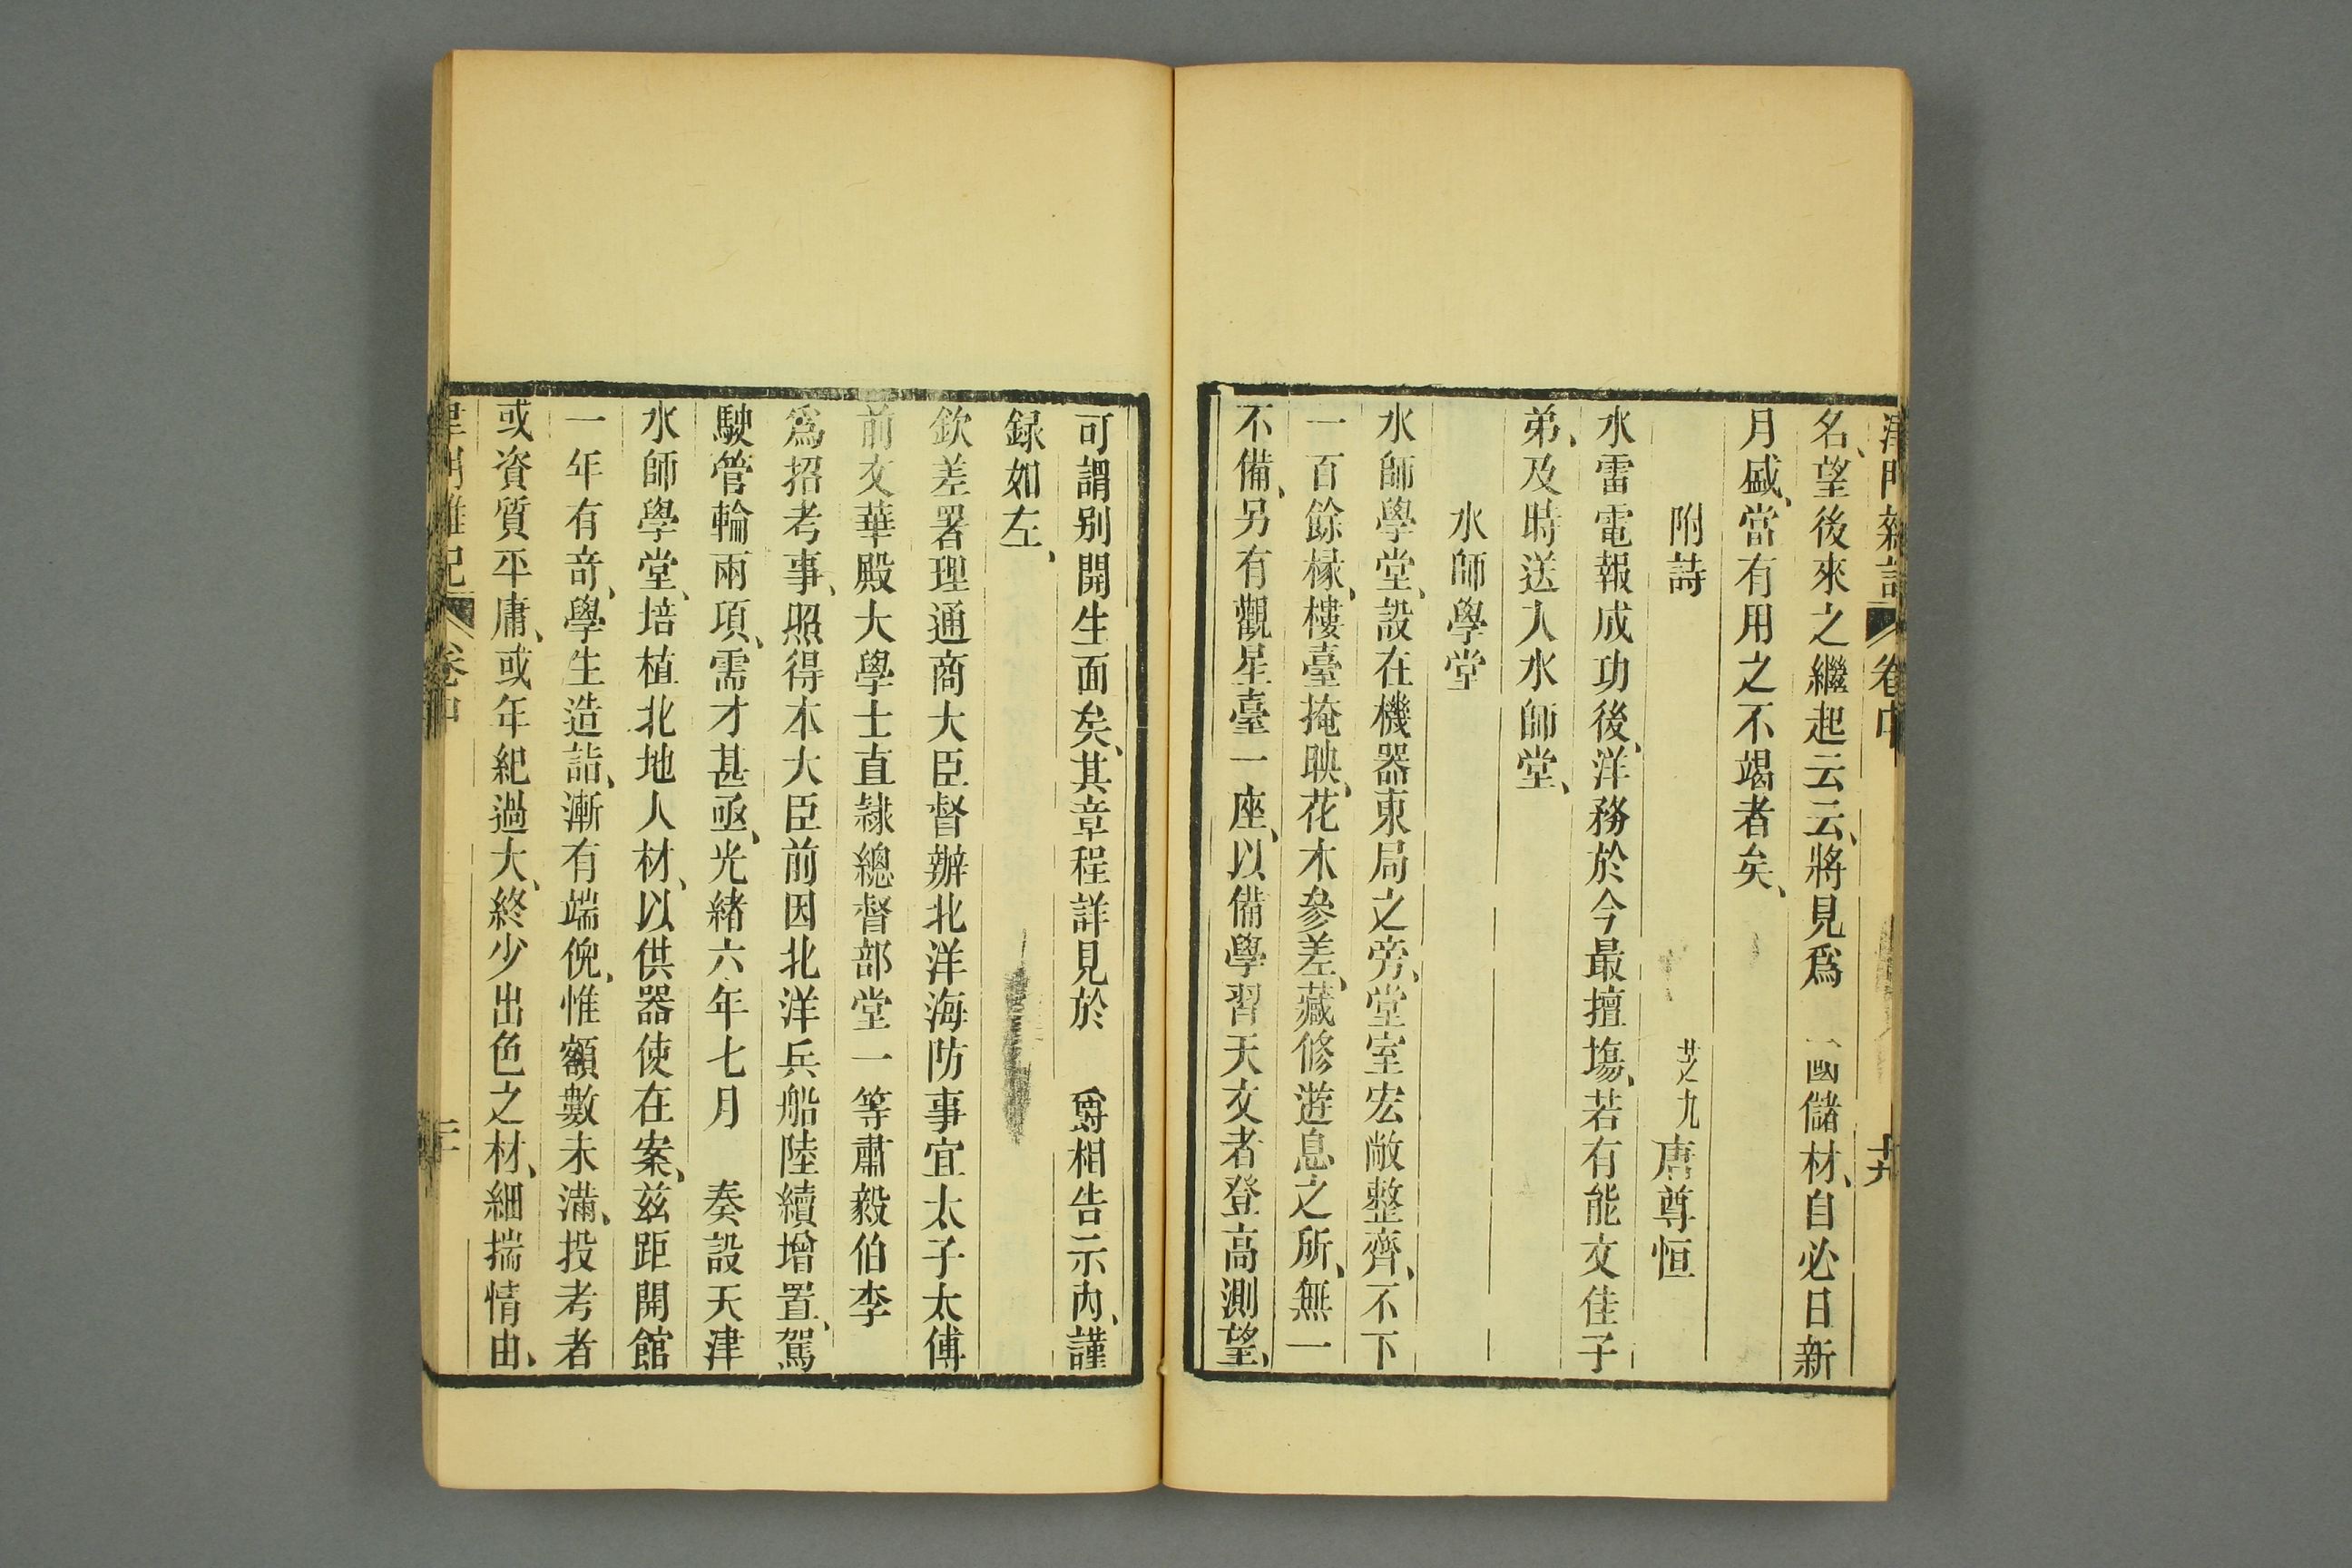 津門雜記 卷中 廿九
名、望後來之繼起云云、將見爲 國儲材、自必日新
月盛、當有用之不竭者矣、
附詩 芝九唐尊恒
水雷電報成功後、洋務於今最擅塲、若有能文佳子
弟、及時送入水師堂、
水師學堂
水師學堂、設在機器東局之旁、堂室宏敞整齊、不下
一百餘椽、樓臺掩映、花木參差、藏修遊息之所、無一
不備、另有觀星臺一座、以備學習天文者登高測望、
可謂别開生面矣、其章程詳見於 爵相告示內、謹
録如左、
欽差署理通商大臣督辦北洋海防事宜太子太傅
前文華殿大學士直隸總督部堂一等肅毅伯李
爲招考事、照得本大臣前因北洋兵船陸續增置、駕
駛管輪兩項、需才甚亟、光緒六年七月 奏設天津
水師學堂、培植北地人材、以供器使在案、兹距開館
一年有奇、學生造詣、漸有端倪、惟額數未滿、投考者
或資質平庸、或年紀過大、終少出色之材、細揣情由、
津門雜記 卷中